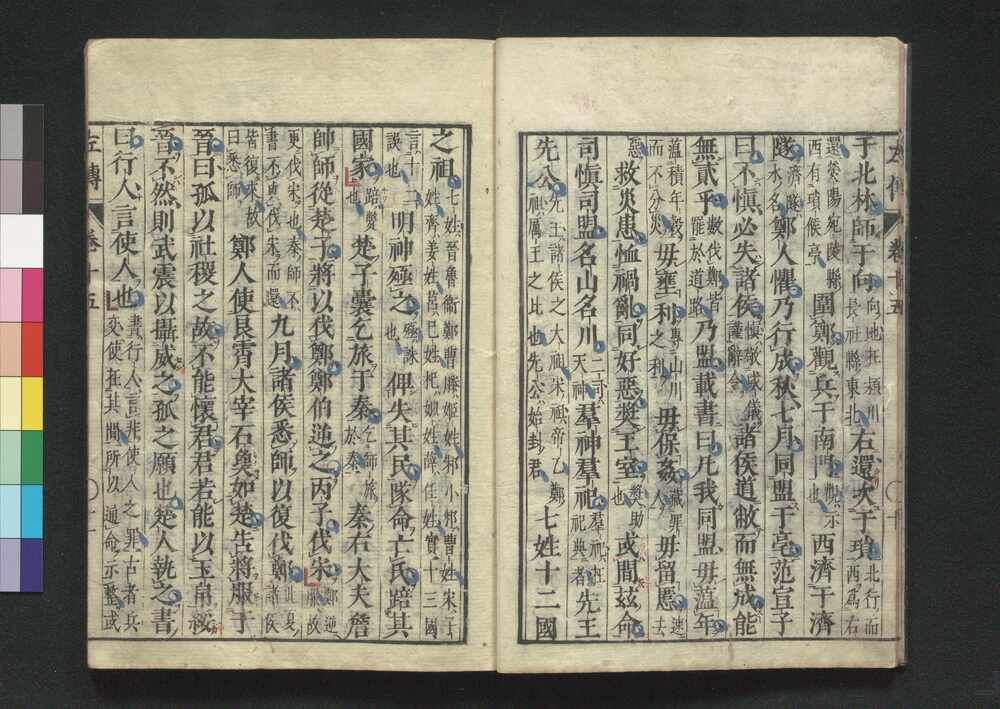 左傳 卷十五
于北林師于向向地在潁川長社縣東北右還次于瑣北行而西爲右
還滎陽宛陵縣西有瑣候亭圍鄭觀兵于南門觀示也西濟于濟
隧濟隧水名鄭人懼乃行成秋七月同盟于亳范宣子
曰不慎必失諸侯慎敬威儀謹辭令諸侯道敝而無成能
無貳乎數伐鄭皆罷於道路乃盟載書曰凡我同盟毋薀年
薀積年穀而不分災毋壅利專山川之利毋保姦藏罪人毋留慝速去
惡救災患恤禍亂同好惡奬王室奬助也或間茲命
司慎司盟名山名川二司天神羣神羣祀羣祀在祀典者先王
先公先王諸侯之大祖宋祖帝乙鄭祖厲王之比也先公始封君七姓十二國
之祖七姓晉魯衛鄭曹滕姬姓邾小邾曹姓宋子姓齊姜姓莒己姓杞姒姓薛任姓實十三國
言十二誤也明神殛之殛誅也俾失其民隊命亡氏踣其
國家踣斃也楚子囊乞旅于秦乞師旅於秦秦右大夫詹
帥師從楚子將以伐鄭鄭伯逆之丙子伐宋鄭逆服故
更伐宋也秦師不書不與伐宋而還九月諸侯悉師以復伐鄭此夏諸侯
皆復來故曰悉師鄭人使良霄大宰石㚟如楚告將服于
晉曰孤以社稷之故不能懷君君若能以玉帛綏
晉不然則武震以攝威之孤之願也楚人執之書
曰行人言使人也書行人言非使人之罪古者兵交使在其間所以通命示整或
左傳 卷十五